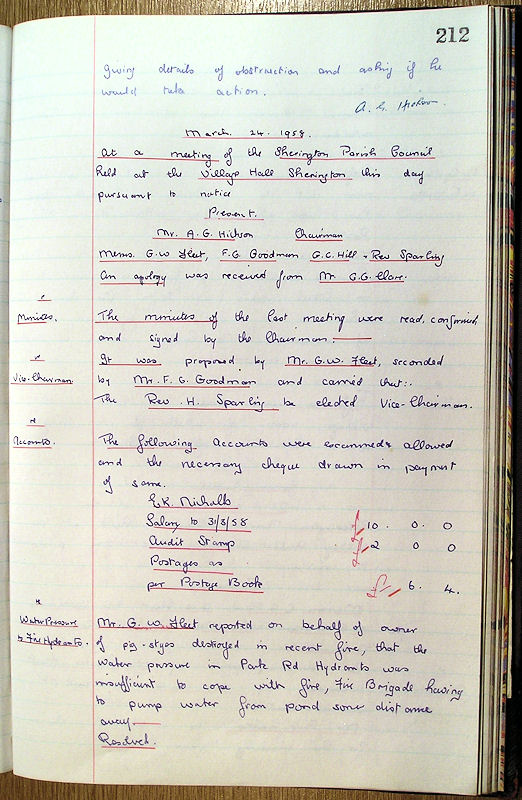 212
giving details of obstruction and asking if he
would take action.
A. G. Hickson.
March. 24. 1958.
At a meeting of the Sherington Parish Council
held at the Village Hall Sherington this day
pursuant to notice
Present.
Mr. A. G. Hickson Chairman
Messrs. G.W Fleet, F.G. Goodman G.C. Hill + Rev Sparling
An apology was received from Mr G.G.
Minutes.
The minutes of the last meeting were read, confirmed
and signed by the Chairman.
Vice-Chairman.
It was proposed by Mr. G.W. Fleet, seconded
by Mr. F. G. Goodman and carried that:.
The Rev. H. Sparling be elected Vice-Chairman.
Accounts.
The following accounts were examined & allowed
and the necessary cheque drawn in payment
of same.
E.K. Nicholls
Salary to 31/3/58 £10. 0. 0
Audit Stamp £2 0 0
Postages as
per Postage Book £ 6. 4.
Water Pressure
to Fire Hydrants.
Mr. G. W. Fleet reported on behalf of owner
of pig-styes destroyed in recent fire, that the
water pressure in Park Rd Hydrants was
insufficient to cope with fire, Fire Brigade having
to pump water from pond some distance
away.
Resolved.